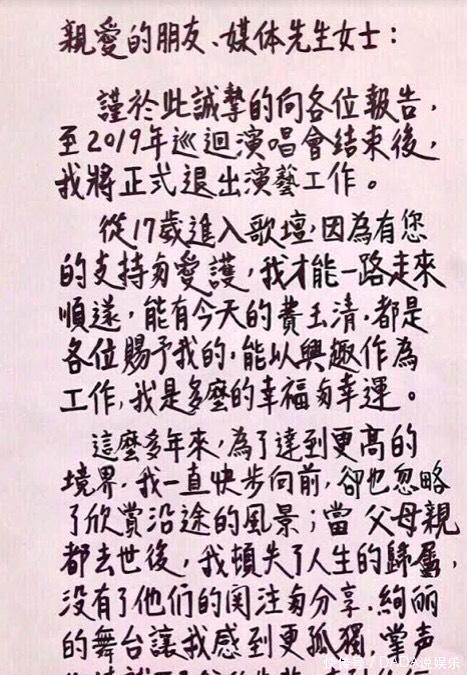 親愛的朋友、媒体先生女士：
謹於此誠摯的向各位報告，
至2019年巡迴演唱會結束後，
我將正式退出演藝工作。
從17歲進入歌壇，因為有您
的支持与愛護，我才能一路走來
順遂，能有今天的費玉清．都是
各位賜予我的，能以興趣作為
工作，我是多麼的幸福与幸運。
這麼多年來，為了達到更高的
境界，我一直快步向前，卻也忽略
了欣賞沿途的風景；當父母親
都去世後，我頓失了人生的歸屬，
没有了他們的関注与分享．絢麗
的舞台讓我感到更孤獨，掌声
快传号/DADA说娱乐